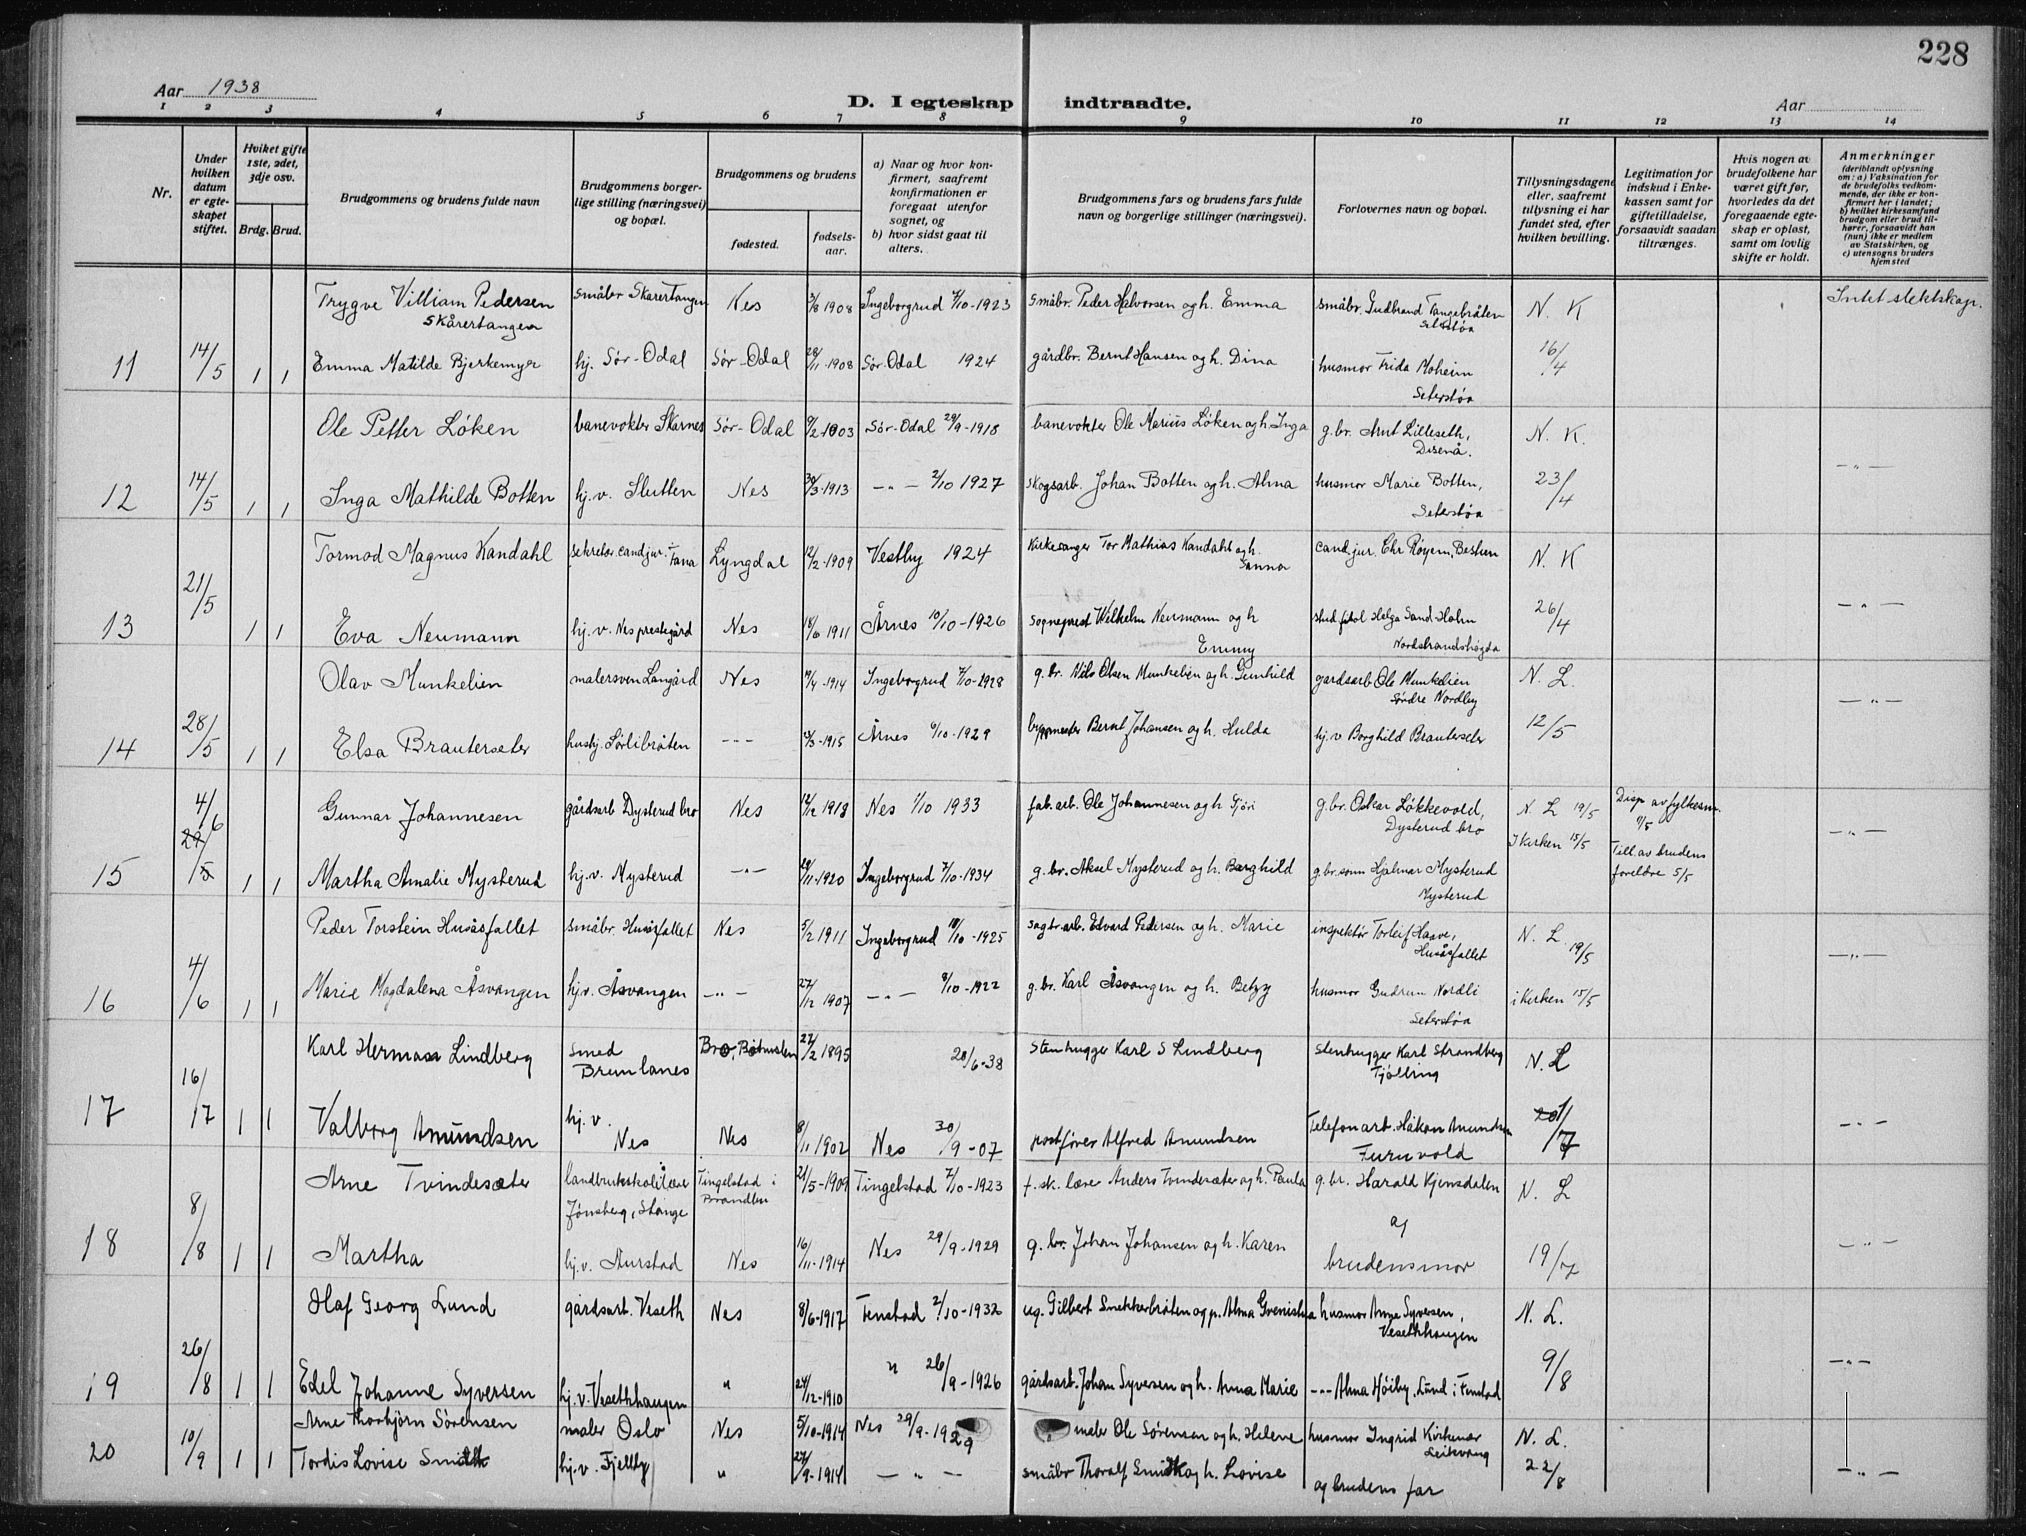 228
Aar 1938
D. I egteskap indtraadte.
Aar
1 2 3 4 5 6 7 8 9 10 11 12 13 14
Nr.
Under hvilken datum er egteskapet stiftet.
Hviket gifte 1ste, 2det, 3dje osv.
Brdg. Brud.
Brudgommens og brudens fulde navn
Brudgommens borgerlige stilling (næringsvei) og bopæl.
Brudgommens og brudens
fødested.
fødselsaar.
a) Naar og hvor konfirmert, saafremt konfirmationen er foregaat utenfor sognet, og
b) hvor sidst gaat til alters.
Brudgommens fars og brudens fars fulde navn og borgerlige stillinger (næringsvei).
Forlovernes navn og bopæl.
Tillysningsdagene eller, saafremt tillysning ei har fundet sted, efter hvilken bevilling.
Legitimation for indskud i Enkekassen samt for giftetilladelse, forsaavidt saadan tiltrænges.
Hvis nogen av brudefolkene har været gift før, hvorledes da det foregaaende egteskap er opløst, samt om lovlig skifte er holdt.
Anmerkninger (deriblandt oplysning om: a) Vaksination for de brudefolks vedkommende, der ikke er konfirmert her i landet; b) hvilket kirkesamfund brudgom eller brud tilhører, forsaavidt han (hun) ikke er medlem av Statskirken, og c) utensogns bruders hjemsted
Trygve Villiam Pedersen Skårertangen småbr Skarertangen Nes 3/8 1908 Ingeborgrud 7/10-1923 småbr. Peder Halvorsen og h. Emma småbr. Gudbrand Tangebråten Seterstøa N. K Intet slektskap.
11 14/5 1 1 Emma Matilde Bjerkemyr hj. Sør-Odal Sør-Odal 28/11-1908 Sør-Odal 1924 gårdbr. Bernt Hansen og h. Dina husmor Frida Moheim Seterstøa 16/4
Ole Petter Løken banevokter Skarnes Sør-Odal 9/2-1903 Sør-Odal 29/9-1918 banevokter Ole Marius Løken og h. Inga g.br. Arnt Lilleseth, Disenå. N. K.
12 14/5 1 1 Inga Mathilde Botten hj. v. Slutten Nes 30/3-1913 -"- 2/10 1927 skogsarb. Johan Botten og h. Alma husmor Marie Botten, Seterstøa 23/4 -"-
Tormod Magnus Kandahl sekretær cand.jur. Fana Lyngdal 12/2-1909 Vestby 1924 Kirkesanger Tor Mathias Kandahl og h. Sanna cand.jur. Chr Røyem, Bestum N. K
13 21/5 1 1 Eva Neumann hj. v. Nes prestegård Nes 18/6 1911 Årnes 10/10-1926 sogneprest Wilhelm Neumann og h Emmy stud filol Helga Sand-Holm Nordstrandshøgda 26/4 -"-
Olav Munkelien malersven Langård Nes 9/4-1914 Ingeborgrud 7/10-1928 g.br. Nils Olsen Munkelien og h. Gunhild gardsarb Ole Munkelien Søndre Nordby N. L.
14 28/5 1 1 Elsa Brauterseter hushj. Sørlibråten --- 13/3-1915 Årnes 6/10-1929 byggmester Bernt Johansen og h. Hulda hj. v Borghild Brauterseter 12/5 -"-
4/6 Gunnar Johannesen gårdsarb Dysterud bro Nes 12/12 1913 Nes 1/10 1933 fab.arb. Ole Johannesen og h Gjøri g.br. Oskar Løkkevold, Dysterud bro N. L 19/5 Disp av fylkesm. 11/5
15 1 1 Martha Amalie Mysterud hj. v. Mysterud -"- 29/11-1920 Ingeborgrud 7/10-1934 g.br. Aksel Mysterud og h. Borghild g.br.sønn Hjalmar Mysterud Mysterud I Kirken 15/5 Till. av brudens foreldre 5/5 -"-
Peder Torstein Husåsfallet småbr. Husåsfallet Nes 5/2 1911 Ingeborgrud 18/10-1925 sagbr.arb. Edvard Pedersen og h. Marie inspektør Torleif Haave, Husåsfallet N. L. 19/5
16 4/6 1 1 Marie Magdalena Åsvangen hj.v. Åsvangen -"- 27/12 1907 -"- 8/10-1922 g.br. Karl Åsvangen og h. Betzy husmor Gudrun Nordli Seterstøa i Kirken 15/5 -"-
Karl Herman Lindberg smed Brunlanes Bro, Båhuslen 22/2 1895 20/6-38 stenhugger Karl S Lindberg stenhugger Karl Strandberg Tjølling N. L
17 16/7 1 1 Valborg Amundsen hj. v. Nes Nes 8/11 1902 Nes 30/9-07 postfører Alfred Amundsen Telefonarb. Håkon Amundsen Furuvold 1/7 -"-
Arne Tvindesæter landbruksskolelærer Jønsberg, Stange Tingelstad i Brandbu 21/5-1909 Tingelstad 7/10-1923 f. sk. lærer Anders Tvindesæter og h. Paula g.br. Harald Kjensdalen N. L
18 8/8 1 1 Martha hj. v. Aurstad Nes 16/11-1914 Nes 29/9-1929 g.br. Johan Johansen og h. Karen og brudens mor 19/7 -"-
Olaf Georg Lund gårdsarb. Veseth Nes 8/6-1917 Fenstad 2/10-1932 ug. Gilbert Snekkerbråten og p. Alma husmor Anne Syversen, Vesethhaugen N. L.
19 26/8 1 1 Edel Johanne Syversen hj. v. Vesethhaugen " 24/12-1910 " 26/9-1926 gårdsarb. Johan Syvesen og h. Anna Marie --- Alma Høiby, Lund i Fenstad 9/8 -"-
Arne Thorbjörn Sörensen maler Oslo Nes 5/10-1914 Nes 29/9-1929 maler Ole Sørensen og h. Helene husmor Ingrid Kirkenær N. L.
20 10/9 1 1 Tordis Lovise Smidth hj. v. Fjellby " 27/9-1914 -"- småbr Thoralf Smidth og h. Lovise og brudens far 22/8 -"-